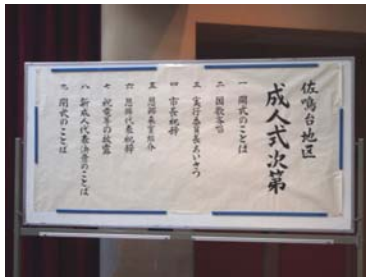 佐鳴台地区
成人式次第
一 開式のことば
二 国歌斉唱
三 実行委員長あいさつ
四 市長祝辞
五 恩師来賓紹介
六 恩師代表祝辞
七 祝電等の披露
八 新成人代表決意のことば
九 閉式のことば